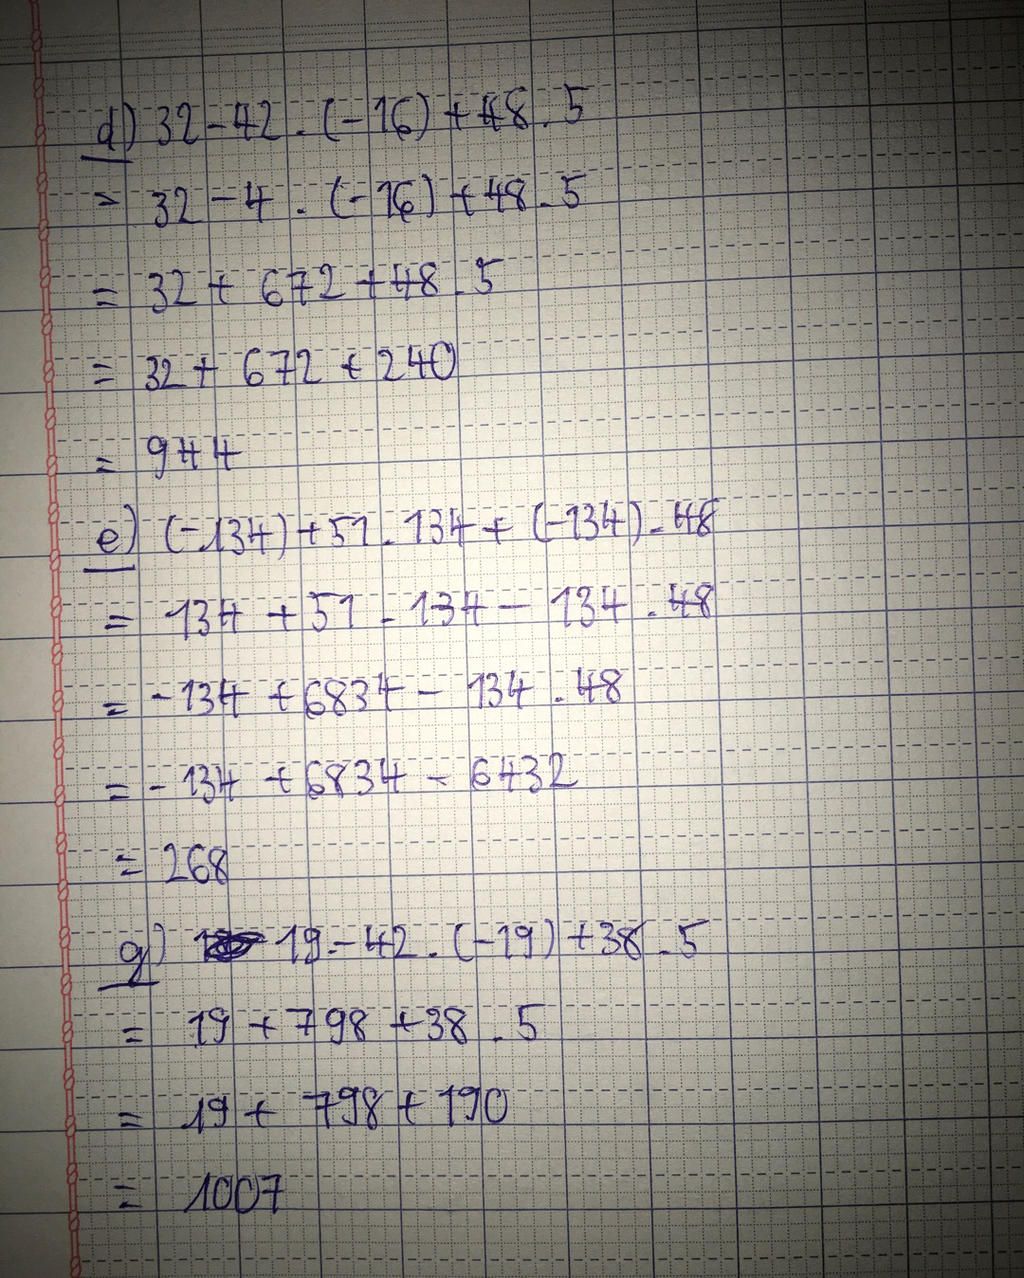 d) 32 - 42 . (-16) + 48 . 5
= 32 - 4 . (-16) + 48 . 5
= 32 + 672 + 48 . 5
= 32 + 672 + 240
= 944
e) (-134) + 51 . 134 + (-134) . 48
= 134 + 51 . 134 - 134 . 48
= - 134 + 6834 - 134 . 48
= - 134 + 6834 - 6432
= 268
g) 19 - 42 . (-19) + 38 . 5
= 19 + 798 + 38 . 5
= 19 + 798 + 190
= 1007